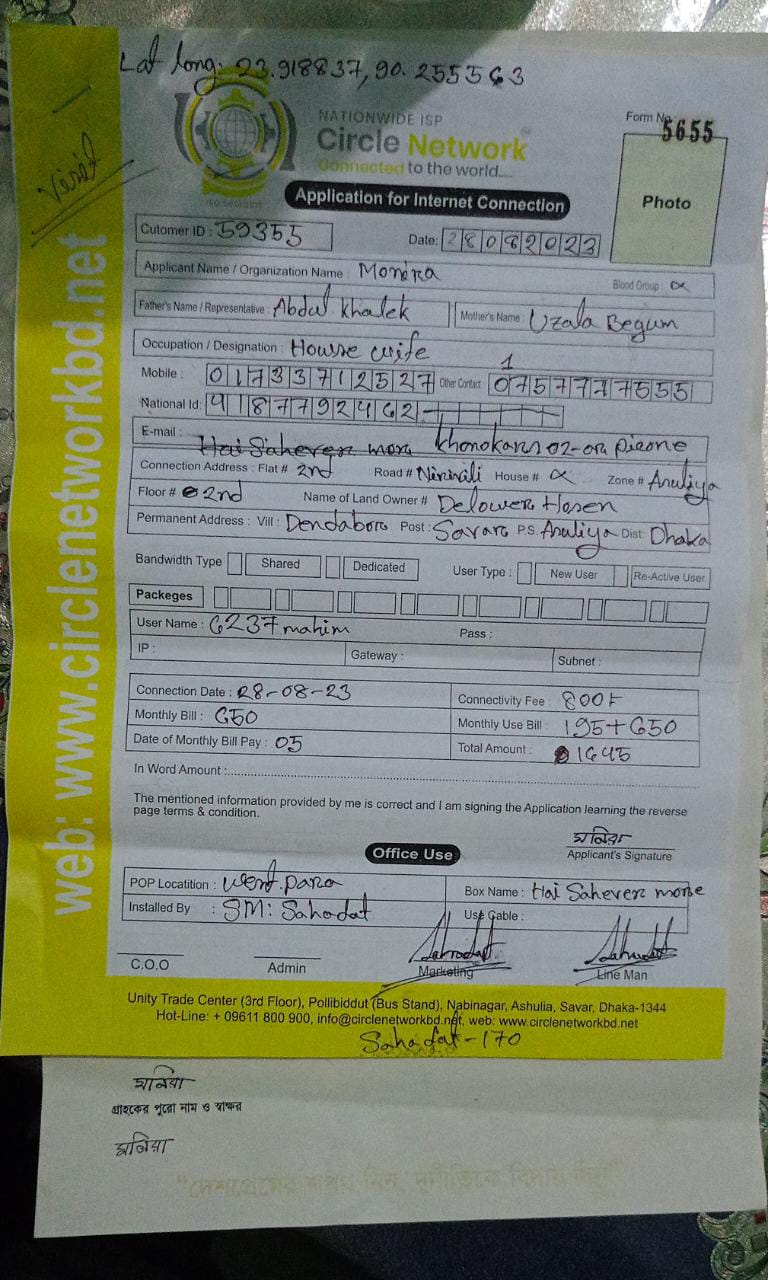 Lat long: 23.918837, 90.255563
Visit
NATIONWIDE ISP
Circle Network
Connected to the world....
Form No. 5655
Photo
Application for Internet Connection
Cutomer ID : 59355
Date: 28082023
Applicant Name / Organization Name : Monira
Blood Group :
Father's Name / Representative : Abdul Khalek Mother's Name : Uzala Begum
Occupation / Designation : Housse wife
Mobile : 01733712527 Other Contact 
National Id: 4187792462
E-mail : Hai Saherer more
Connection Address : Flat # 2nd Road # Nirinili House # Zone # Asuliya
Floor # 2nd Name of Land Owner # Delower Hosen
Permanent Address : Vill : Dendaboro Post : Savar P.S. Asuliya Dist: Dhaka
Bandwidth Type Shared Dedicated User Type : New User Re-Active User
Packeges
User Name : 6237mahim Pass :
IP : Gateway : Subnet :
Connection Date : 28-08-23 Connectivity Fee : 800৳
Monthly Bill : 650 Monthly Use Bill : 195+650
Date of Monthly Bill Pay : 05 Total Amount : 1645
In Word Amount :
The mentioned information provided by me is correct and I am signing the Application learning the reverse
page terms & condition.
মনিরা
Applicant's Signature
Office Use
POP Locatition : West para Box Name : Hai Saherer more
Installed By : SM: Sahadat Use Cable :
C.O.O Admin Marketing Line Man
Unity Trade Center (3rd Floor), Pollibiddut (Bus Stand), Nabinagar, Ashulia, Savar, Dhaka-1344
Hot-Line: + 09611 800 900, info@circlenetworkbd.net, web: www.circlenetworkbd.net
Sahadat-170
web: www.circlenetworkbd.net
মনিরা
গ্রাহকের পুরো নাম ও স্বাক্ষর
মনিরা